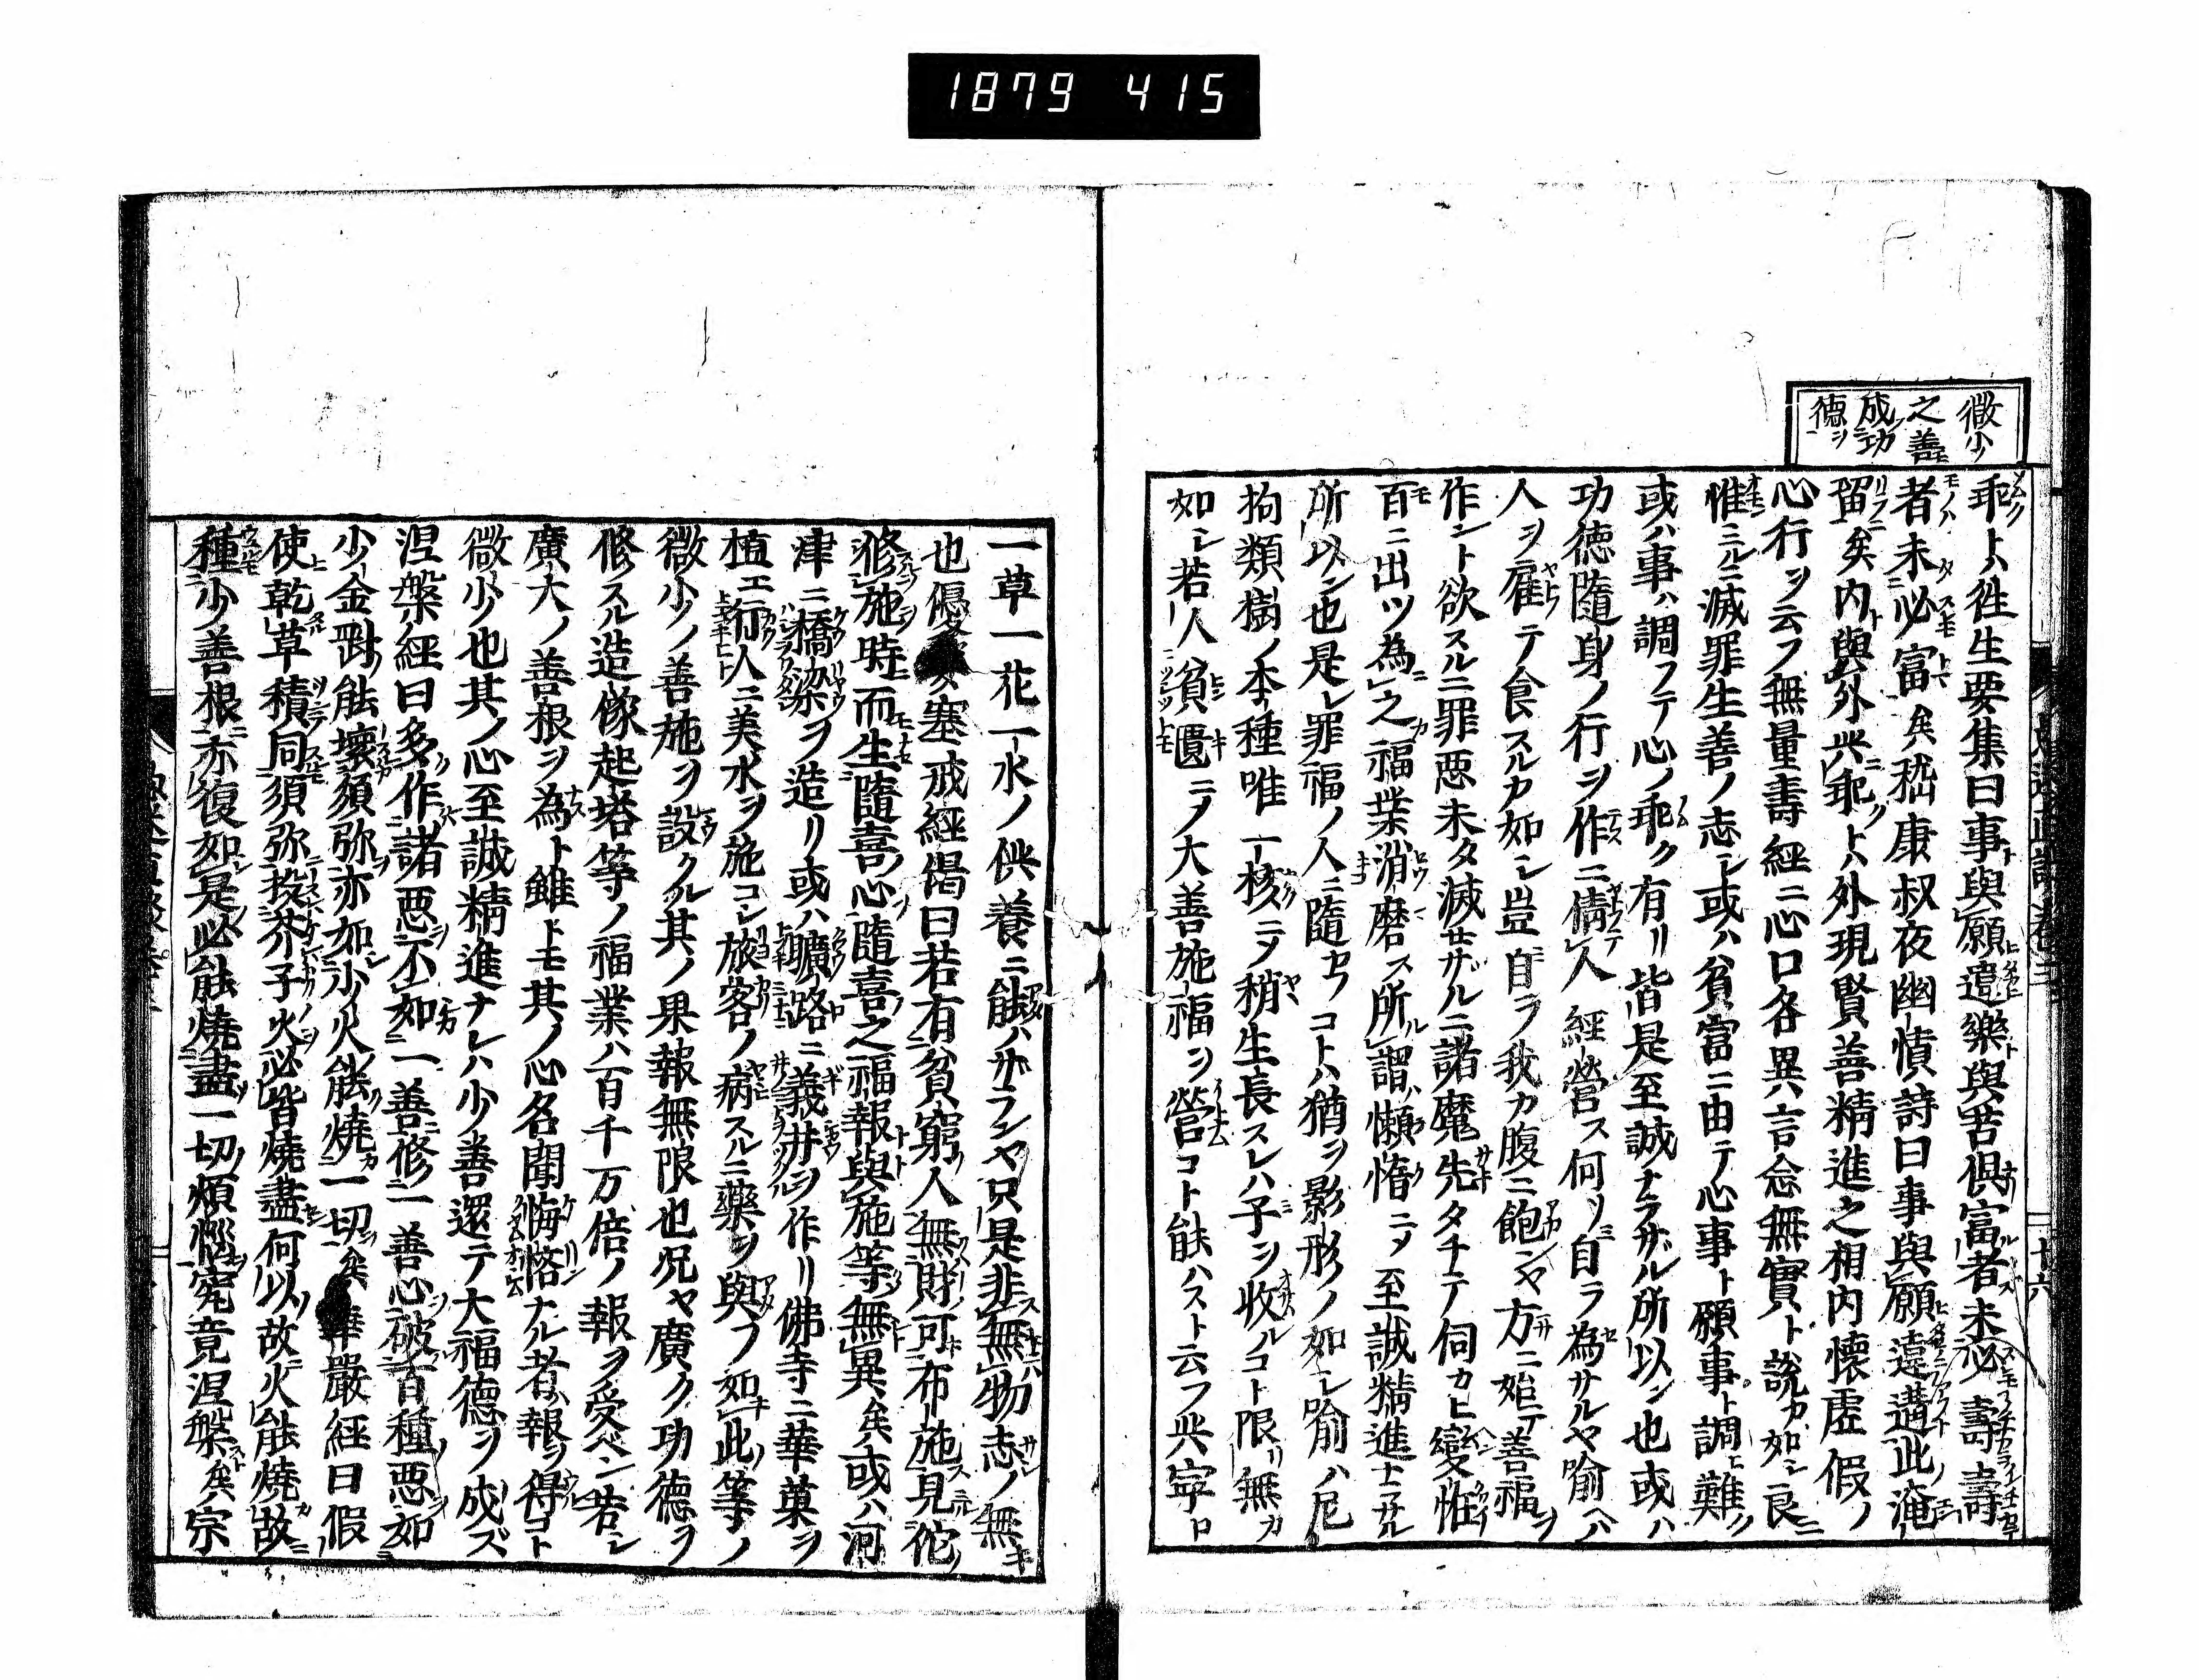 1879 415
微少
之善
成功
德ヲ
乖トハ徃生要集曰事與願違樂與苦俱富者未必壽壽
者未必富矣嵆康叔夜幽憤詩曰事與願違遘此淹
留矣内與外乖トハ外現賢善精進之相内懷虚假ノ
心行ヲ云フ無量壽經ニ心口各異言念無實ト說カ如シ良
惟ミルニ滅罪生善ノ志シ或ハ貧富ニ由テ心事ト願事ト調ヒ難ク
或ハ事ハ調フテ心ノ乖ク有リ皆是至誠ナラザル所以ン也或ハ
功德隨身ノ行ヲ作ニ倩人經營ス何ソ自ラ為サルヤ喻ヘハ
人ヲ雇テ食スルカ如シ豈自ラ我カ腹ニ飽ンヤ方ニ始テ善福ヲ
作ント欲スルニ罪惡未タ滅セザルニ諸魔先タチテ伺カヒ變恠
百ニ出ツ為之福業消磨ス所謂懶惰ニメ至誠精進ナラサル
所以ン也是レ罪福ノ人ニ隨フコトハ猶ヲ影形ノ如シ喻ハ尼
拘類樹ノ本種唯一核ニメ稍生長スレハ子ヲ收ルコト限リ無カ
如シ若人貧匱ニメ大善施福ヲ營コト能ハスト云フ共寧ロ
十六
一草一花一水ノ供養ニ能ハザランヤ只是非無物志ノ無キ
也優婆塞戒經偈曰若有貧窮人無財可布施見佗
修施時而生隨喜心隨喜之福報與施等無異矣或ハ河
津ニ橋梁ヲ造リ或ハ曠路ニ義井ヲ作リ佛寺ニ華菓ヲ
植エ行人ニ美水ヲ施コシ旅客ノ病スルニ藥ヲ與フ如此等ノ
微少ノ善施ヲ設クル其ノ果報無限也况ヤ廣ク功德ヲ
修スル造像起塔等ノ福業ハ百千万倍ノ報ヲ受ベシ若シ
廣大ノ善根ヲ為ト雖トモ其ノ心名聞悔悋ナル者報ヲ得コト
微少也其ノ心至誠精進ナレハ少善還テ大福德ヲ成ズ
涅槃經曰多作諸惡不如一善修一善心破百種惡如
少金剛能壞須弥亦如少火能燒一切矣華嚴經曰假
使乾草積同須弥投芥子火必皆燒盡何以故火能燒故
種少善根亦復如是必能燒盡一切煩惱究竟涅槃矣宗